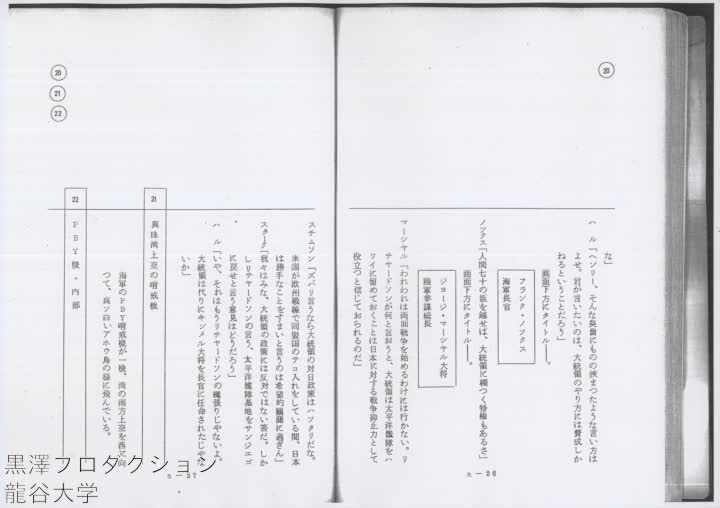 ⑳
な」
ハル「ヘンリー、そんな奥歯にものの挾まつたような言い方は
よせ。君が言いたいのは、大統領のやり方には賛成しか
ねるということだろう」
画面下方にタイトル──。
フランク・ノックス
海軍長官
ノックス「人間七十の坂を越せば、大統領に楯つく特権もあるさ」
画面下方にタイトル──。
ジョージ・マーシャル大将
陸軍参謀総長
マーシャル「われわれは両面戦争を始めるわけには行かない。リ
チャードソンが何と言おうと、大統領は太平洋艦隊をハ
ワイに留めておくことは日本に対する戦争抑止力として
役立つと信じておられるのだ」
n－26
⑳
㉑
㉒
スチムソン「ズバリ言うなら大統領の対日政策はハッタリだな。
米国が欧州戦線で同盟国のテコ入れをしている間、日本
は勝手なことをすまいと言うのは希望的観測に過ぎん」
スターク「我々はみな、大統領の政策には反対ではない筈だ。しか
しリチャードソンの言う、太平洋艦隊基地をサンジエゴ
に戻せと言う意見はどうだろう」
ハル「いや、それはもうリチャードソンの縄張りじやないよ。
大統領は代りにキンメル大将を長官に任命されたじやな
いか」
21 真珠湾上空の哨戒機
海軍のPBY哨戒機が一機、湾の南方上空を西に向
つて、真ッ白いアホウ鳥の様に飛んでいる。
22 PBY機・内部
n－27
黒澤プロダクション
龍谷大学